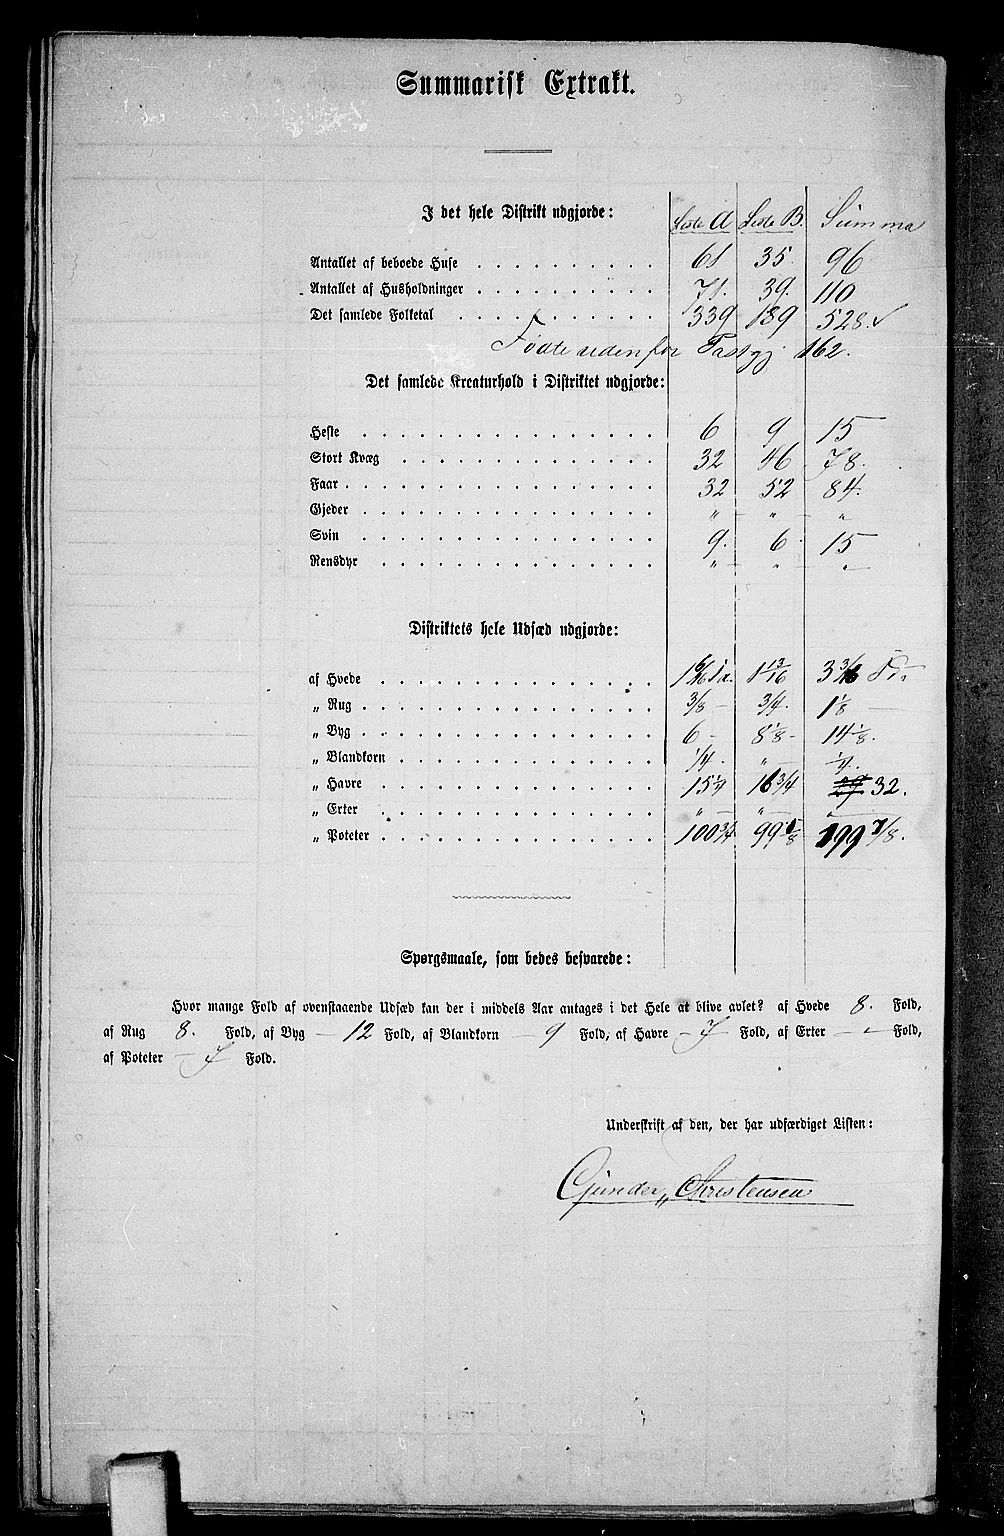 Summarisk Extrakt.
I det hele Distrikt udgjorde: Liste A Liste B. Summa
Antallet af beboede Huse 61 35. 96
Antallet af Husholdninger 71. 39. 110
Det samlede Folketal 339 189 528. ✓
Fødte udenfor 162.
Det samlede Kreaturhold i Distriktet udgjorde:
Heste 6 9 15
Stort Kvæg 32 46 78.
Faar 32 52 84.
Gjeder " " "
Svin 9. 6. 15
Rensdyr " " "
Distriktets hele Udsæd udgjorde:
af Hvede 1 13/16 3 3/16
„ Rug 3/8 3/4. 1 1/8
„ Byg 6 8 1/8 14 1/8.
„ Blandkorn 1/4. " 1/4.
„ Havre 15 1/4 16 3/4 32.
„ Erter " " "
„ Poteter 100 3/4 99 1/8 199 7/8.
Spørgsmaale, som bedes besvarede:
Hvor mange Fold af ovenstaaende Udsæd kan der i middels Aar antages i det Hele at blive avlet? af Hvede 8. Fold,
af Rug 8. Fold, af Byg 12 Fold, af Blandkorn 9 Fold, af Havre 7 Fold, af Erter - Fold,
af Poteter 7 Fold.
Underskrift af den, der har udfærdiget Listen:
Gunder Christensen